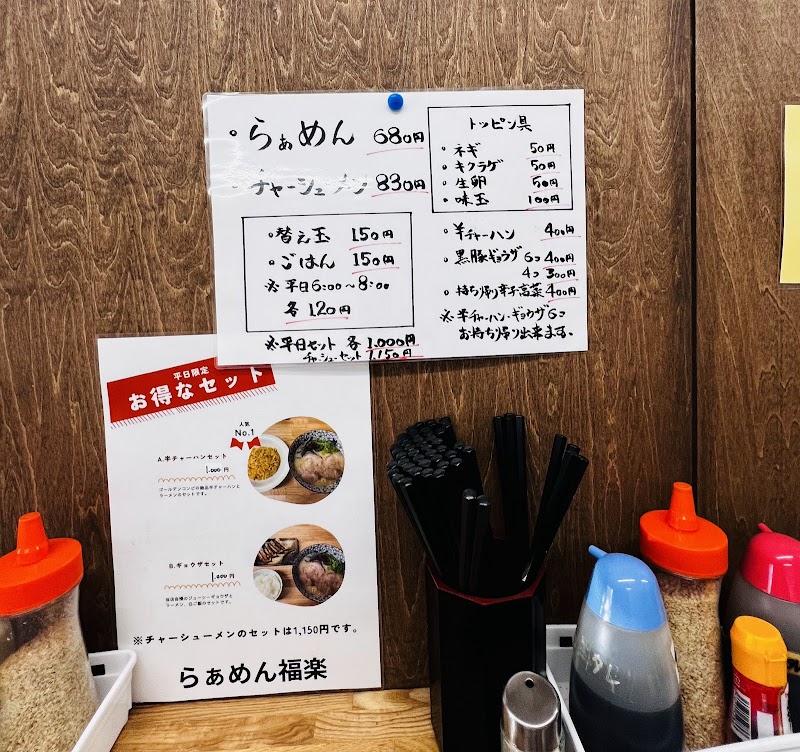 ・らぁめん 680円
・チャーシューメン 830円
・替え玉 150円
・ごはん 150円
※平日6:00〜8:00
各120円
※平日セット 各1.000円
チャーシューセット1,150円
トッピン具
・ネギ 50円
・キクラゲ 50円
・生卵 50円
・味玉 100円
・半チャーハン 400円
・黒豚ギョウザ 6コ 400円
4コ 300円
・持ち帰り辛子高菜 400円
※半チャーハン・ギョウザ6コ
お持ち帰り出来ます。
平日限定
お得なセット
人気
No.1
A.半チャーハンセット
1.000円
ゴールデンコンビの絶品半チャーハンと
ラーメンのセットです。
B.ギョウザセット
1.000円
当店自慢のジューシーギョウザと
ラーメン、白ご飯のセットです。
※チャーシューメンのセットは1,150円です。
らぁめん福楽